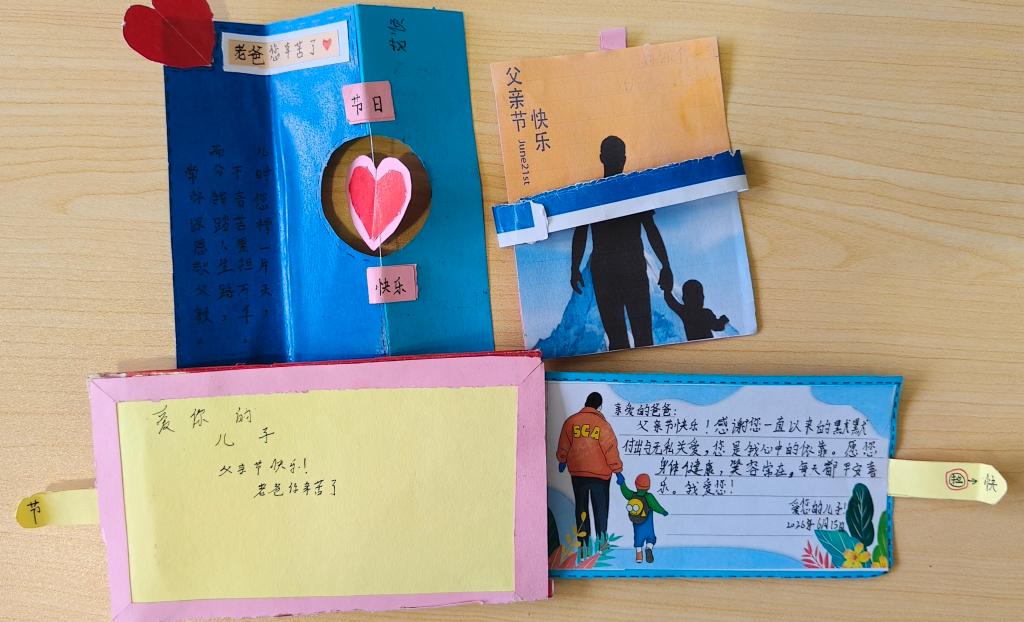 老爸您辛苦了
节日
快乐
儿时您撑一片天，
不言苦累担万
而今我踏人生路，
常怀深恩敬父
父亲节
快乐
June21st
爱你的
儿子
父亲节快乐！
老爸你辛苦了
节
亲爱的爸爸：
父亲节快乐！感谢您一直以来的默默
付出与无私关爱，您是我心中的依靠。愿您
身体健康，笑容常在，每天都平安喜
乐。我爱您！
爱您的儿子！
2026年6月15日
SGA
→快